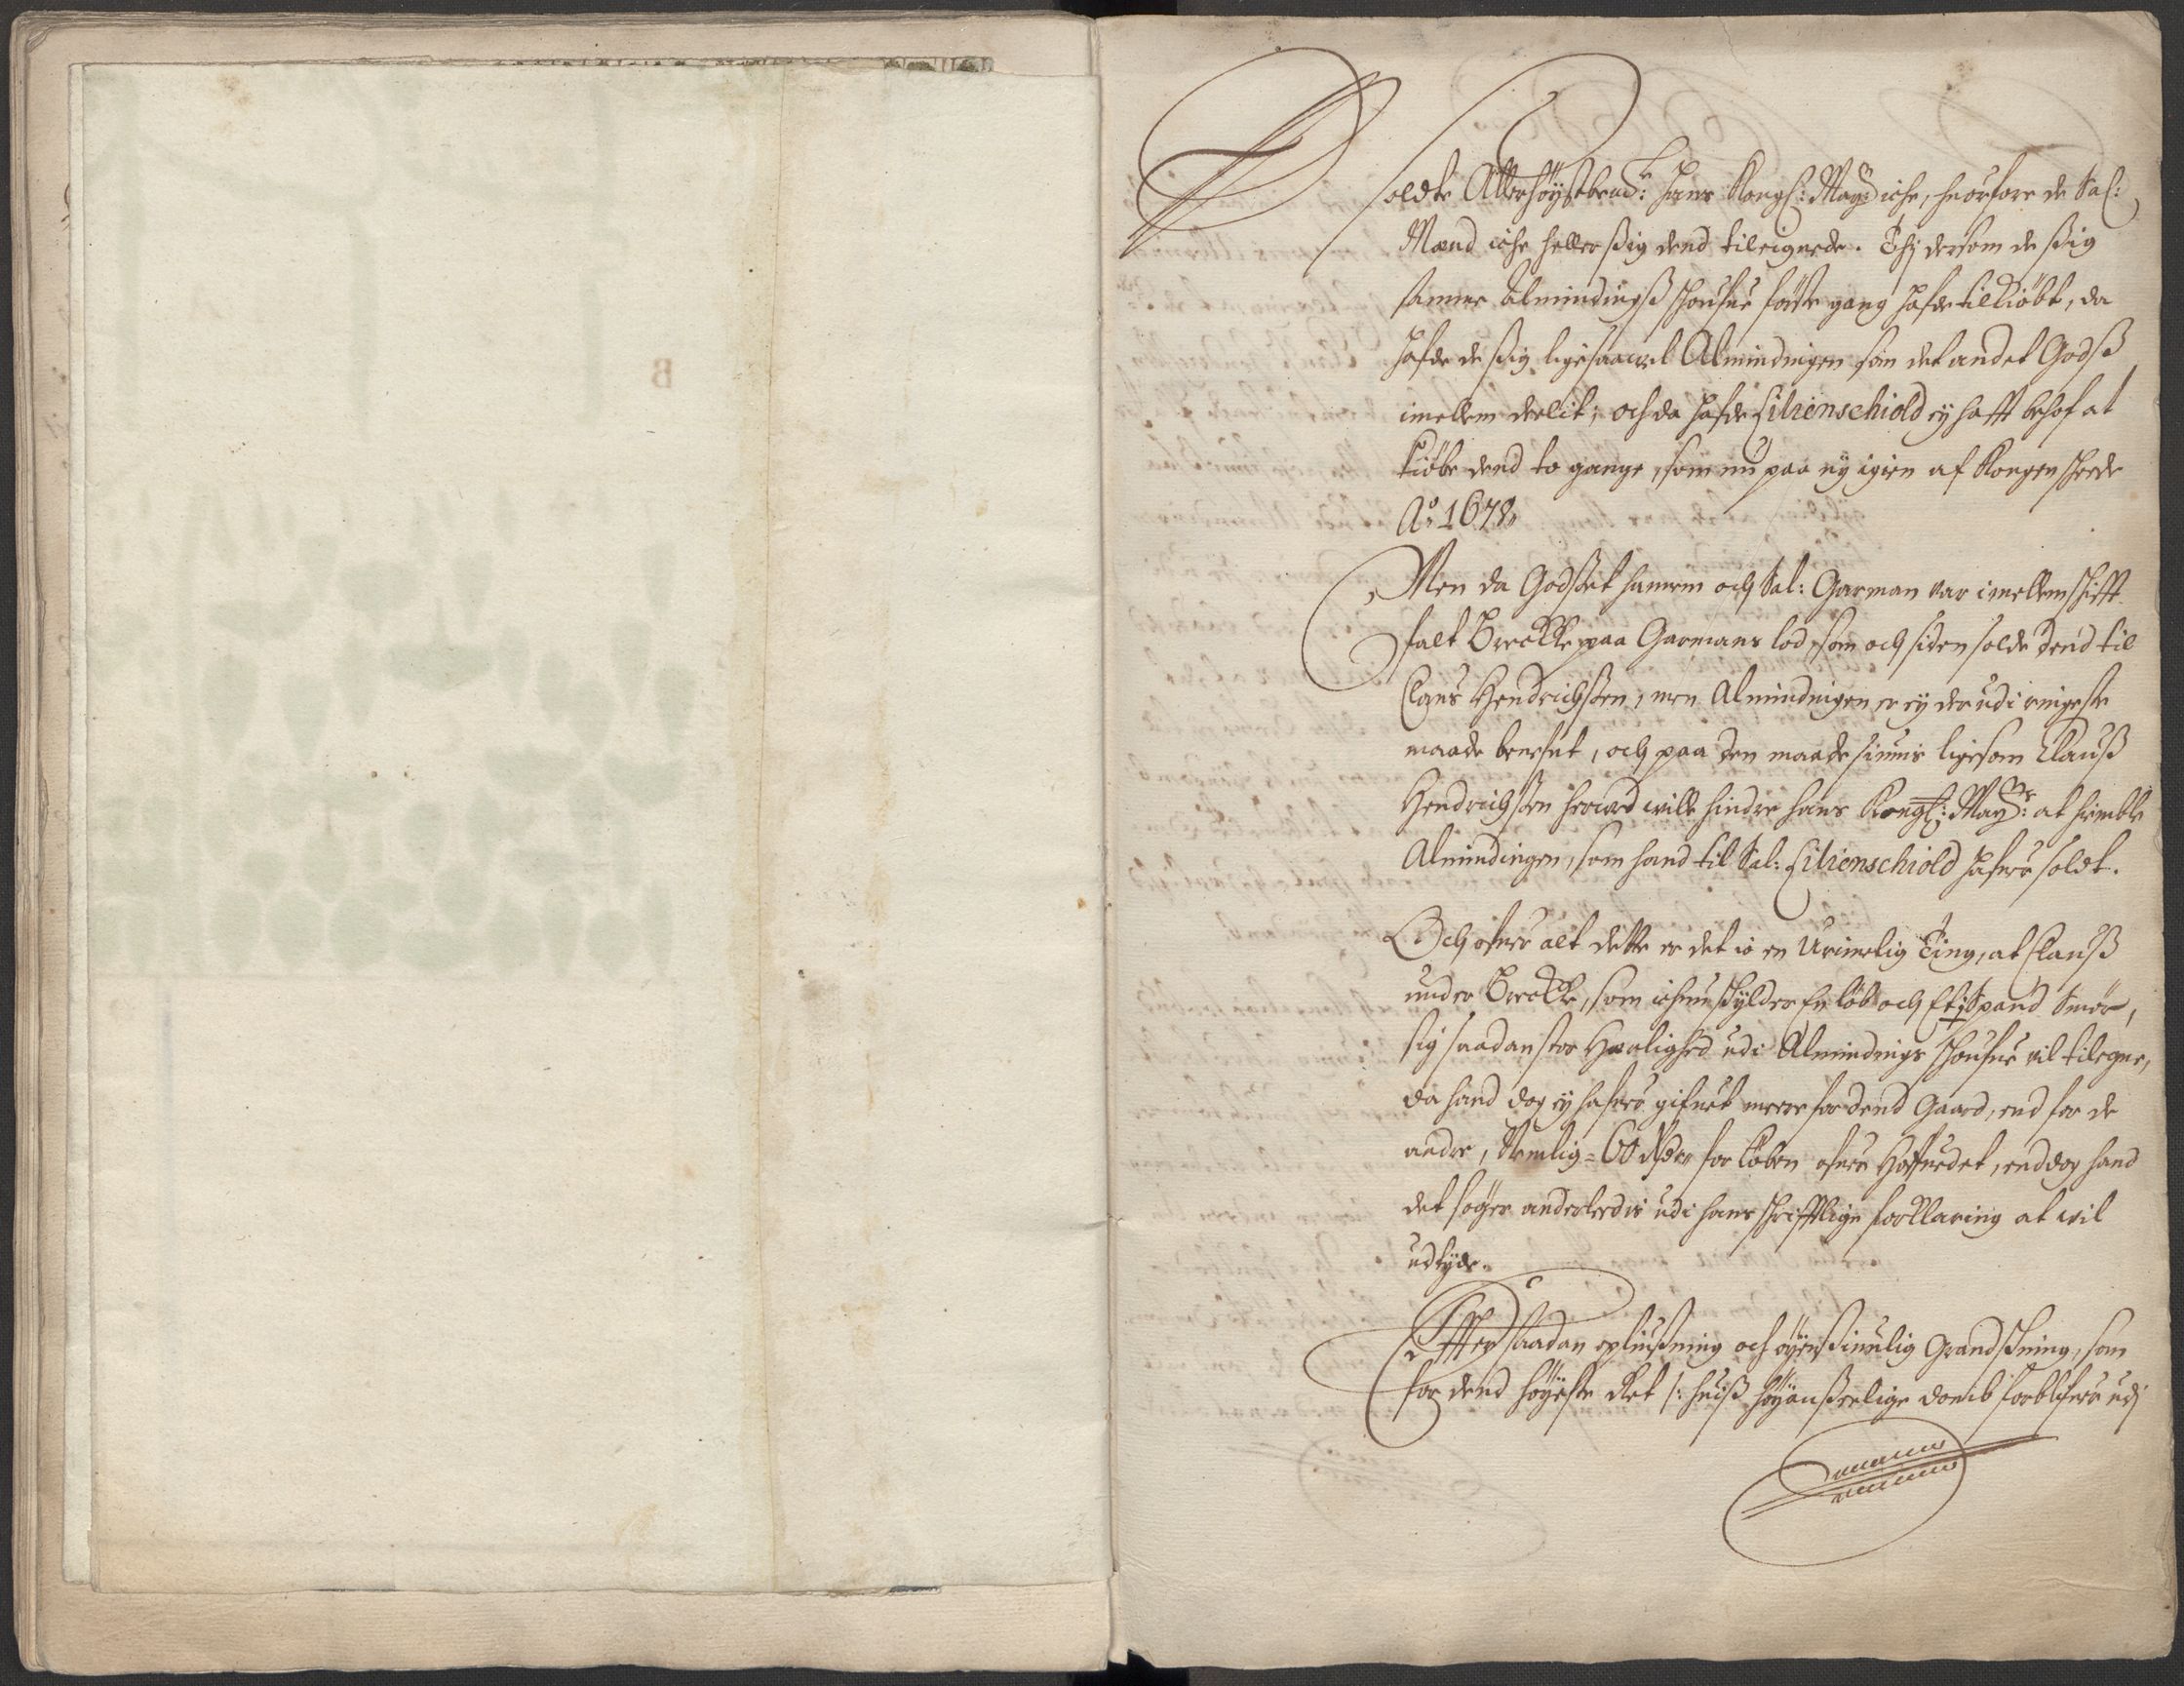 B
soldte Allerhöystbemt: Hans Kongl: Mayt iche, huorfore de Sal:
Mænd iche heller ßig dend tileignede. Thj dersom de ßig
samme Almindingß schoufue förste gang hafde tilkiöbt, da
hafde de ßig ligesaavel Almindingen som det andet Godß
imellem deelit; och da hafde Lilienschiold ey hafft behof at
kiöbe dend to gange, som nu paa ny igien af Kongen skeede
Ao: 1678,
Men da Godßet hannem och Sal: Garman var imellem skifft
falt Brecke paa Garmans lod, som och siden solde dend til
Claus Hendrichßen, men Almindingen er ey der udi ringeste
maade benefnt, och paa den maade siunis ligesom Clauß
Hendrichßen herved ville hindre hans Kongl: Mayts: at hiemble
Almindingen, som hand til Sal: Lilienschiold hafuer soldt.
Och ofuer alt dette er det io en Urimelig Ting, at Clauß
under Brecke, som ichun skylder En löb och Et Spand Smör,
sig saadan stor Herlighed udi Almindings schoufue vil tilegne,
da hand dog ey hafuer gifuet meere for dend Gaard, end for de
andre, Nemlig = 60 Rdr for Löben ofuer Hoffuedet, enddog hand
det söger anderledis udi hans schrifftlige forklaring at vil
udtyde.
Effter saadan opliußning och öyenßiunlig Grandskning, som
for dend höyeste Ret /: huiß höyanßeelige domb forblifuer udj